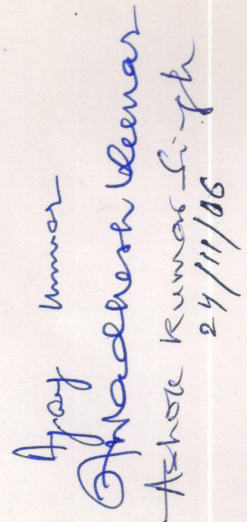 Ajay Kumar
Awadhesh Kumar
Ashok Kumar Singh
24/11/06